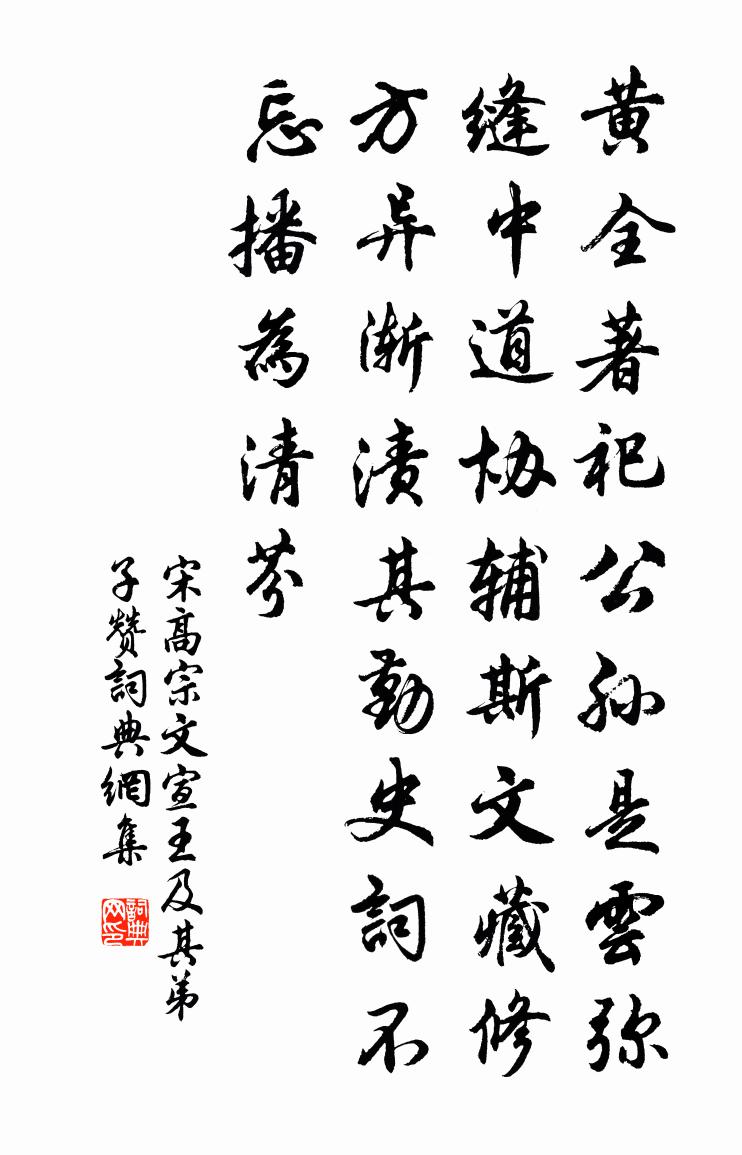 黄全著祀公孙是雲弥
縫中道协辅斯文藏修
方异渐渍其勤史詞不
忘播為清芬
宋高宗文宣王及其弟
子赞詞典網集
詞典网印